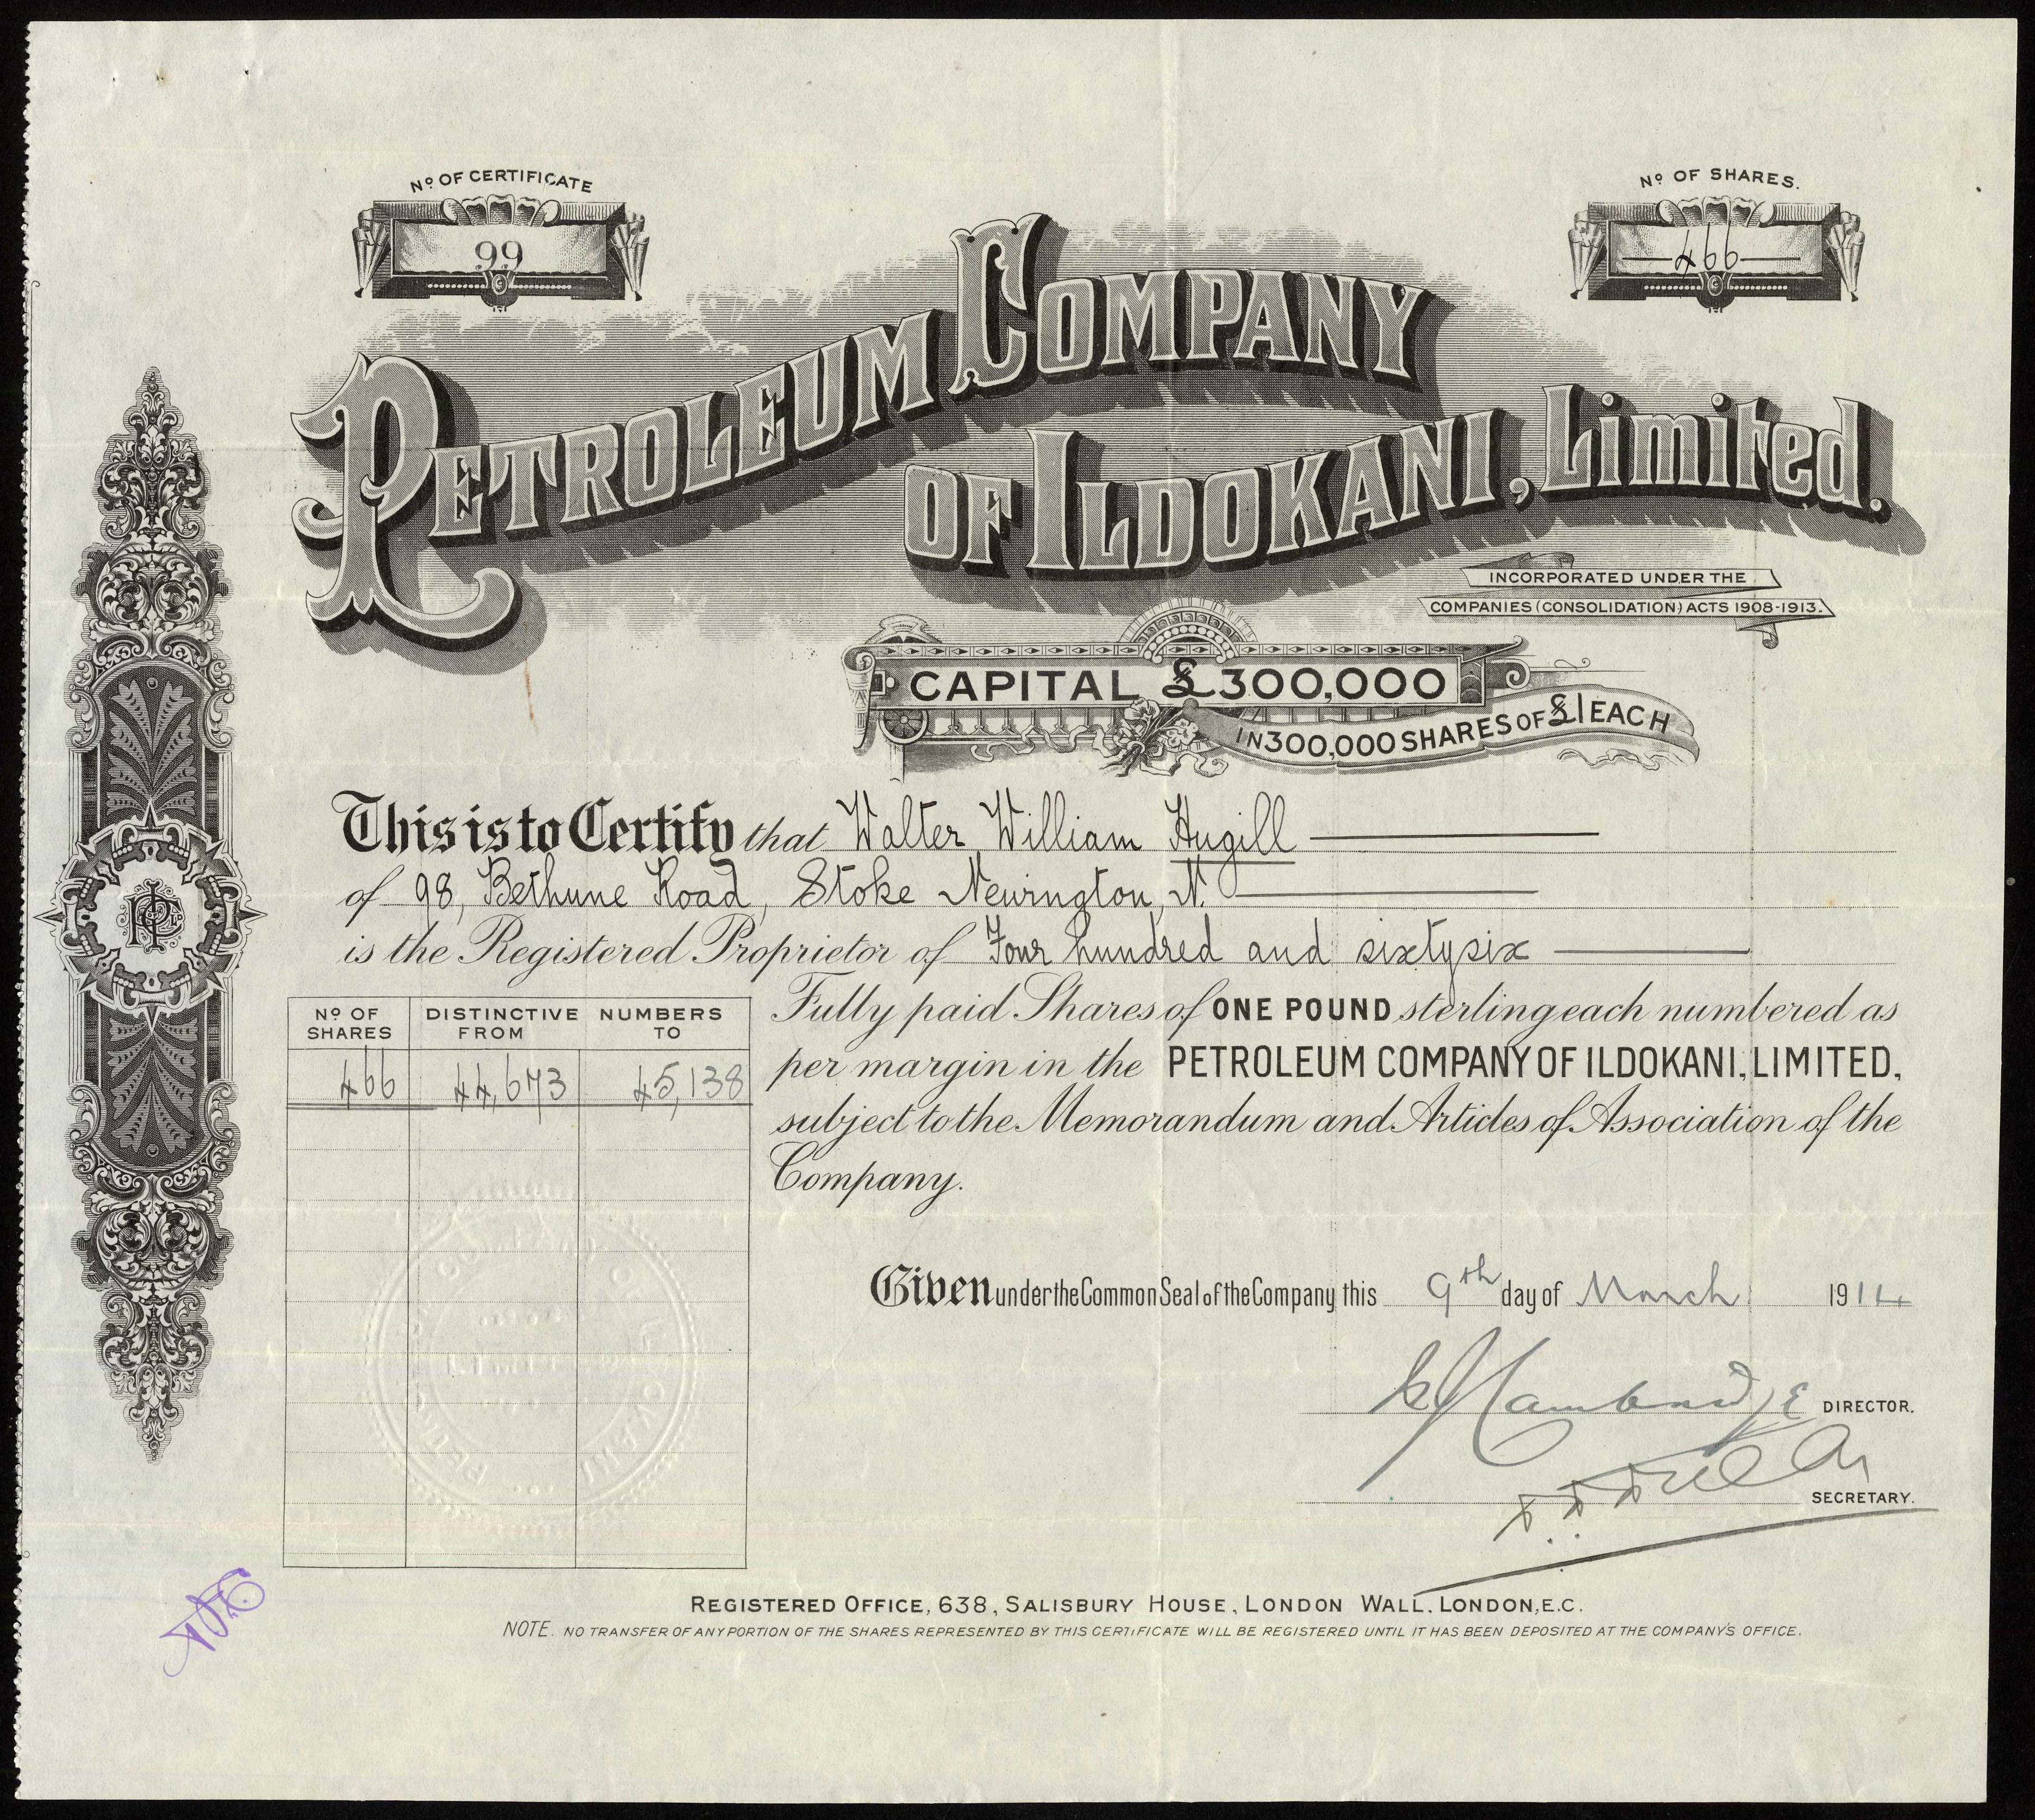 Nº OF CERTIFICATE
99
Nº OF SHARES.
466
PETROLEUM COMPANY
OF ILDOKANI, Limited.
INCORPORATED UNDER THE
COMPANIES (CONSOLIDATION) ACTS 1908-1913.
CAPITAL £300,000
IN 300,000 SHARES OF £1 EACH
This is to Certify that Walter William Hugill
of 98, Bethune Road, Stoke Newington, N.
is the Registered Proprietor of Four hundred and sixtysix
Nº OF SHARES DISTINCTIVE NUMBERS FROM TO
466 44,673 45,138
Fully paid Shares of ONE POUND sterling each numbered as
per margin in the PETROLEUM COMPANY OF ILDOKANI, LIMITED,
subject to the Memorandum and Articles of Association of the
Company.
Given under the Common Seal of the Company this 9th day of March 1914
DIRECTOR.
SECRETARY.
REGISTERED OFFICE, 638, SALISBURY HOUSE, LONDON WALL, LONDON, E.C.
NOTE. NO TRANSFER OF ANY PORTION OF THE SHARES REPRESENTED BY THIS CERTIFICATE WILL BE REGISTERED UNTIL IT HAS BEEN DEPOSITED AT THE COMPANY'S OFFICE.